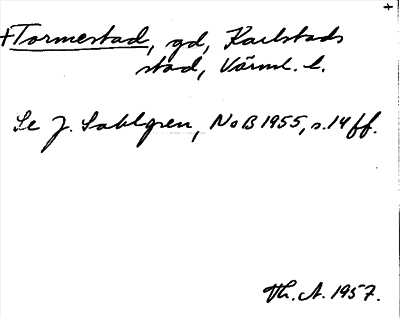 +
+Tormestad, gd, Karlstads
stad, Värml. l.
Se J. Sahlgren, NoB 1955, s. 14 ff.
Th. A. 1957.